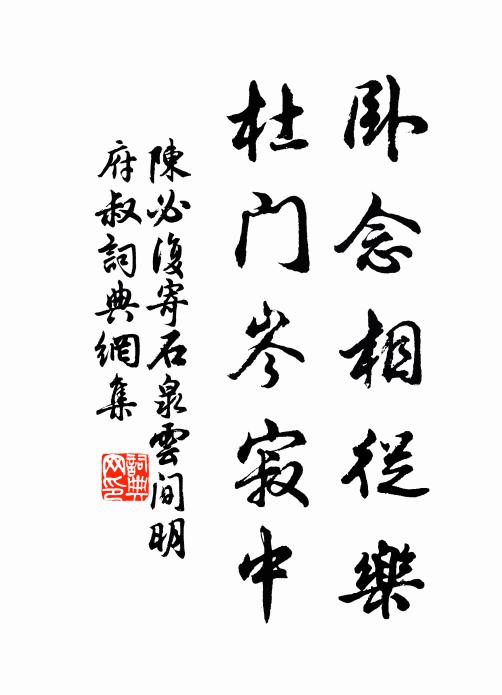 卧念相從樂
杜門岑寂中
陳必復寄石泉雲間明
府叔詞典網集
詞典
网印